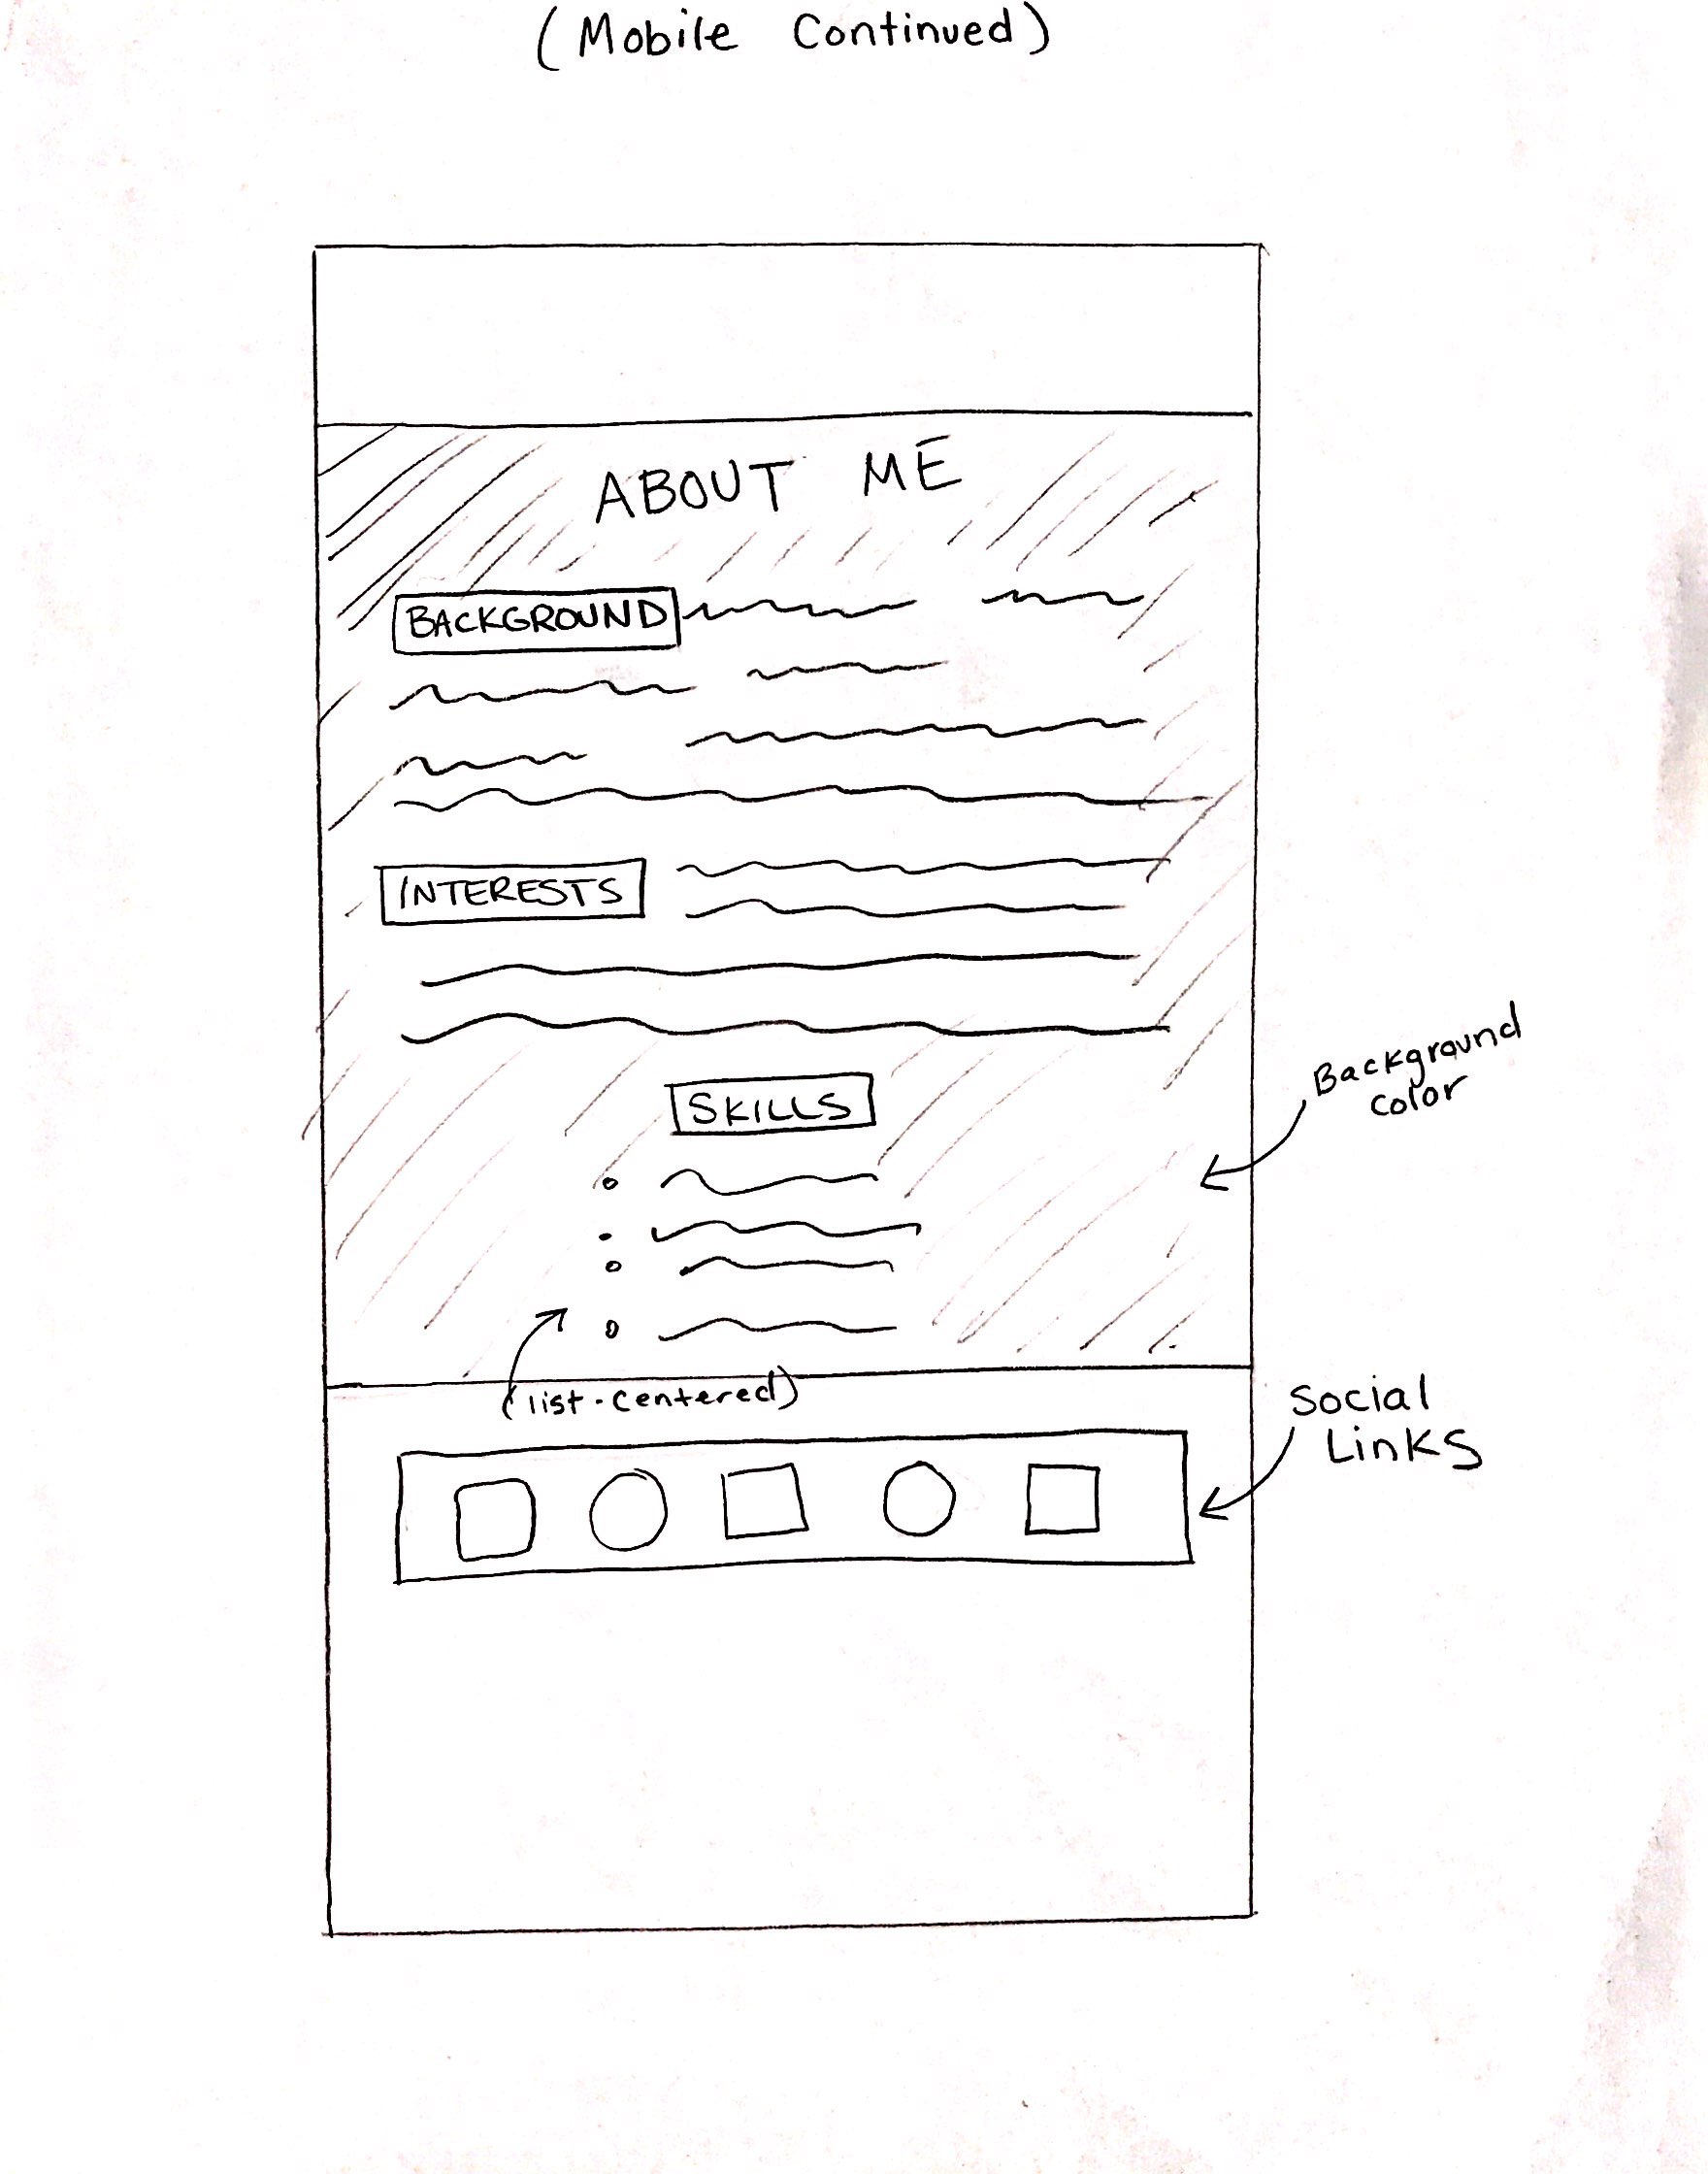 (Mobile Continued)
ABOUT ME
BACKGROUND
INTERESTS
SKILLS
Background
color
(list-centered)
Social
Links